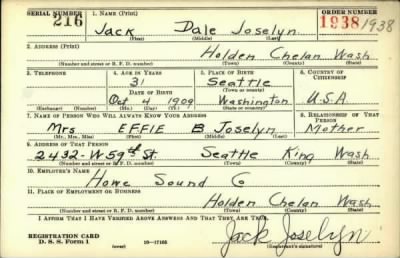 SERIAL NUMBER 1. NAME (Print) ORDER NUMBER
216 Jack Dale Joselyn 1938 1938
(First) (Middle) (Last)
2. ADDRESS (Print)
Holden Chelan Wash
(Number and street or R. F. D. number) (Town) (County) (State)
3. TELEPHONE 4. AGE IN YEARS 5. PLACE OF BIRTH 6. COUNTRY OF CITIZENSHIP
31 Seattle
DATE OF BIRTH (Town or county)
Oct 4 1909 Washington U.S.A
(Exchange) (Number) (Mo.) (Day) (Yr.) (State or country)
7. NAME OF PERSON WHO WILL ALWAYS KNOW YOUR ADDRESS 8. RELATIONSHIP OF THAT PERSON
Mrs EFFIE B Joselyn Mother
(Mr., Mrs., Miss) (First) (Middle) (Last)
9. ADDRESS OF THAT PERSON
2432-W 59th St. Seattle King Wash
(Number and street or R. F. D. number) (Town) (County) (State)
10. EMPLOYER'S NAME
Howe Sound Co
11. PLACE OF EMPLOYMENT OR BUSINESS
Holden Chelan Wash
(Number and street or R. F. D. number) (Town) (County) (State)
I AFFIRM THAT I HAVE VERIFIED ABOVE ANSWERS AND THAT THEY ARE TRUE.
REGISTRATION CARD Jack Joselyn
D. S. S. Form 1 (over) 16-17105 (Registrant's signature)